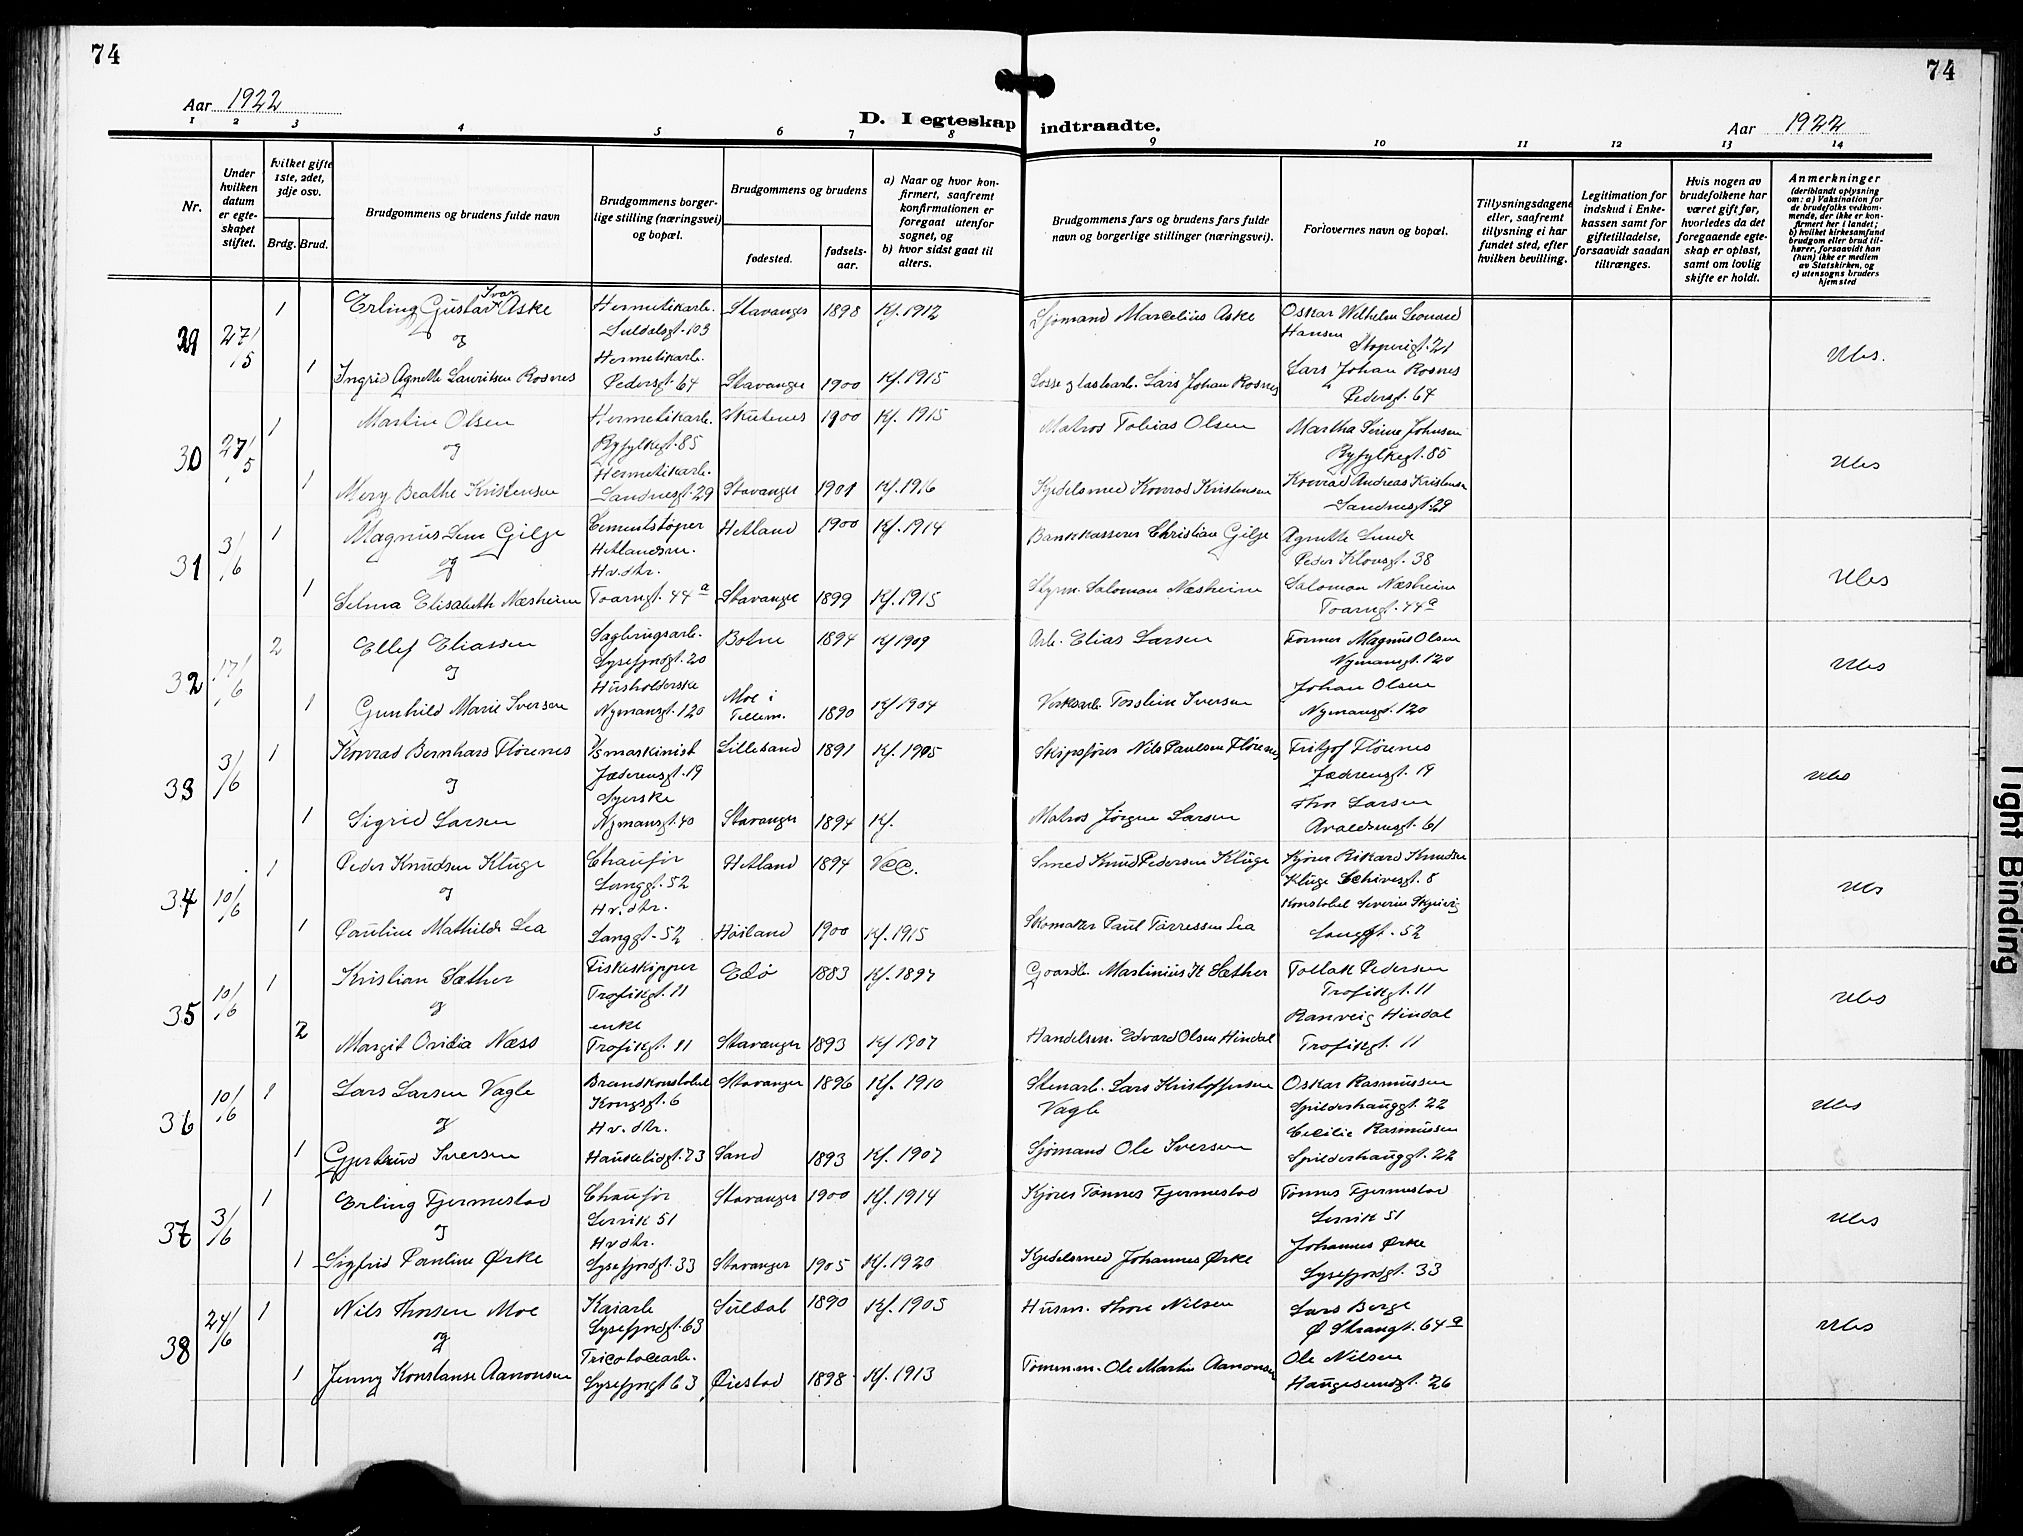 74
74
Aar 1922
D. I egteskap indtraadte.
Aar 1922
1 2 3 4 5 6 7 8 9 10 11 12 13 14
Nr.
Under hvilken datum er egte-skapet stiftet.
hvilket gifte 1ste, 2det, 3dje osv.
Brdg. Brud.
Brudgommens og brudens fulde navn
Brudgommens borger-lige stilling (næringsvei) og bopæl.
Brudgommens og brudens
fødested.
fødsels-aar.
a) Naar og hvor kon-firmert, saafremt konfirmationen er foregaat utenfor sognet, og
b) hvor sidst gaat til alters.
Brudgommens fars og brudens fars fulde navn og borgerlige stillinger (næringsvei).
Forlovernes navn og bopæl.
Tillysningsdagene eller, saafremt tillysning ei har fundet sted, efter hvilken bevilling.
Legitimation for indskud i Enke-kassen samt for giftetilladelse, forsaavidt saadan tiltrænges.
Hvis nogen av brudefolkene har været gift før, hvorledes da det foregaaende egte-skap er opløst, samt om lovlig skifte er holdt.
Anmerkninger
(deriblandt oplysning om: a) Vaksination for de brudefolks vedkom-mende, der ikke er kon-firmert her i landet; b) hvilket kirkesamfund brudgom eller brud til-hører, forsaavidt han (hun) ikke er medlem av Statskirken, og c) utensogns bruders hjemsted
29 27/5 1 Erling Gustav Ivar Aske Hermetikarb. Suldalsgt. 103 Stavanger 1898 Kf. 1912 Sjømand Marcelius Aske Oskar Wilhelm Leonard Hansen Støperigt. 21 Ubs.
og
1 Ingrid Agnethe Lauritsen Rosnes Hermetikarb. Pedersgt. 64 Stavanger 1900 Kf. 1915 Lars Johan Rosnes Lars Johan Rosnes Pedersgt. 64
30 27/5 1 Martin Olsen Hermetikarb. Ryfylkegt. 85 Skutenes 1900 Kf. 1915 Matros Tobias Olsen Martha Serine Johnsen Ryfylkegt. 85 Ubs
og
1 Mery Beathe Kristensen Hermetikarb. Sandnesgt. 29 Stavanger 1901 Kf. 1916 Kjedelsmed Konrad Kristensen Konrad Andreas Kristensen Sandnesgt. 29
31 3/6 1 Magnus Lem Gilje Cementstøper Hetlandsm. Hetland 1900 Kf. 1914 Bankkasserer Christian Gilje Agnethe Lunde Peder Klowsgt. 38 Ubs
og
1 Selma Elisabeth Næsheim Hv. dtr. Toarngt. 44 a Stavanger 1899 Kf. 1915 Styrm. Salomon Næsheim Salomon Næsheim Toarngt. 44 a
32 17/6 2 Ellef Eliassen Sagbrugsarb. Lysefjordgt. 20 Botne 1894 Kf 1909 Arb. Elias Larsen Former Magnus Olsen Nymansgt. 120 Ubs
og
1 Gunhild Marie Iversen Husholderske Nymansgt. 120 Moe i Tellem. 1890 Kf 1904 Verksarb. Torstein Iversen Johan Olsen Nymansgt. 120
33 3/6 1 Konrad Bernhard Flørenes Maskinist Jæderensgt. 19 Lillesand 1891 Kf. 1905 Skipsfører Nils Paulsen Flørenes Fritjof Flørenes Jædrengt. 19 Ubs
og
1 Sigrid Larsen Syerske Nymansgt. 40 Stavanger 1894 Kf. Matros Jørgen Larsen Thor Larsen Avaldsnesgt. 61
34 10/6 1 Peder Knudsen Kluge Chaufør Langgt. 52 Hetland 1894 Smed Knud Pedersen Kluge Kjører Rikard Knudsen Kluge Schivesgt. 8 Ubs
og
1 Pauline Mathilde Lea Hv. dtr. Langgt. 52 Høiland 1900 Kf. 1915 Skomaker Paul Tørressen Lea Konstabel Severin Langgt. 52
35 10/6 1 Kristian Sæther Fiskeskipper Trofikgt. 11 Edø 1883 Kf. 1897 Gaardb. Martinius K Sæther Tollak Pedersen Trofikgt. 11 Ubs
og
2 Margit Ovidia Næss enke Trofikgt. 11 Stavanger 1893 Kf 1907 Handelsm. Edvard Olsen Hindal Ranveig Hindal Trofikgt. 11
36 10/6 1 Lars Larsen Vagle Brandkonstabel Kongsgt. 6 Stavanger 1896 Kf. 1910 Stenarb. Lars Kristoffersen Vagle Oskar Rasmussen Spilderhauggt. 22 Ubs
og
1 Gjertrud Iversen Hv. dtr. Haukelidgt. 73 Sand 1893 Kf. 1907 Sjømand Ole Iversen Cecilie Rasmussen Spilderhauggt. 22
37 3/6 1 Erling Tjermestad Chaufør Lervik 51 Stavanger 1900 Kf. 1914 Kjører Tønnes Tjermestad Tønnes Tjermestad Lervik 51 Ubs
og
1 Sigfrid Pauline Ørke Hv dtr. Lysefjordgt. 33 Stavanger 1905 Kf. 1920 Kjedelsmed Johannes Ørke Johannes Ørke Lysefjordgt. 33
38 24/6 1 Nils Thorsen Moe Kaiarb Lysefjordgt. 63 Suldal 1890 Kf. 1905 Husm. Thore Nilsen Lars Berge Ø Strangt. 64 a Ubs
og
1 Jenny Konstanse Aanonsen Tricotagearb. Lysefjorgt 63 Øiestad 1898 Kf. 1913 Tømm.m. Ole Martin Aanonsen Ole Nilsen Haugesundgt. 26
Tight Binding